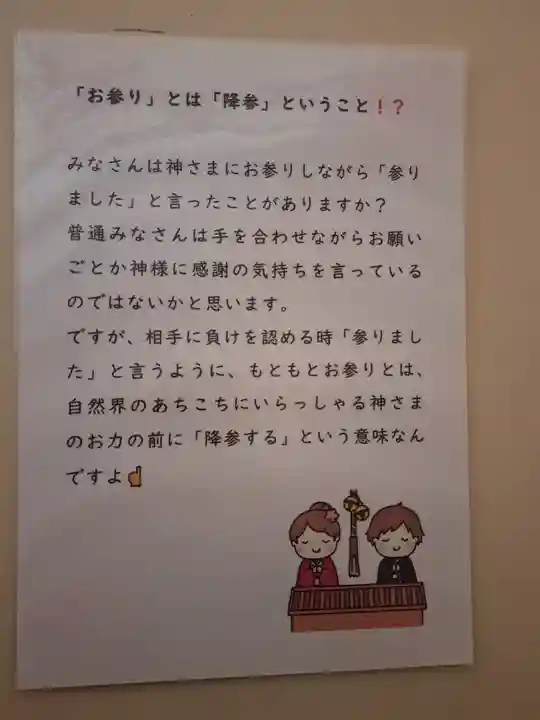 「お参り」とは「降参」ということ❗❓
みなさんは神さまにお参りしながら「参り
ました」と言ったことがありますか？
普通みなさんは手を合わせながらお願い
ごとか神様に感謝の気持ちを言っている
のではないかと思います。
ですが、相手に負けを認める時「参りまし
た」と言うように、もともとお参りとは、
自然界のあちこちにいらっしゃる神さま
のお力の前に「降参する」という意味なん
ですよ☝